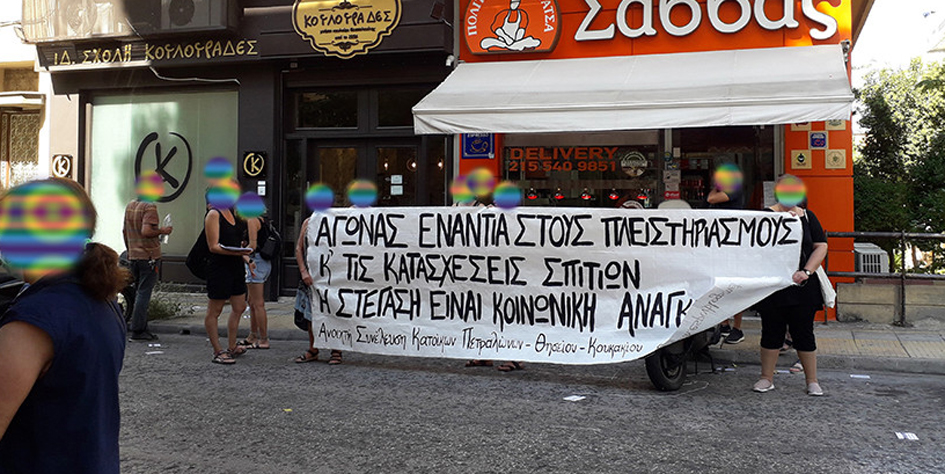 ΚΟΥΛΟΥΡΑΔΕΣ
ΙΔ. ΣΧΟΛΗ ΚΟΥΛΟΥΡΑΔΕΣ
Σάββας
K
K
DELIVERY
215 540 9851
ΑΓΩΝΑΣ ΕΝΑΝΤΙΑ ΣΤΟΥΣ ΠΛΕΙΣΤΗΡΙΑΣΜΟΥΣ
Κ' ΤΙΣ ΚΑΤΑΣΧΕΣΕΙΣ ΣΠΙΤΙΩΝ
Η ΣΤΕΓΑΣΗ ΕΙΝΑΙ ΚΟΙΝΩΝΙΚΗ ΑΝΑΓΚ
Ανοιχτή Συνέλευση Κατοίκων Πετραλώνων - Θησείου - Κουκακίου